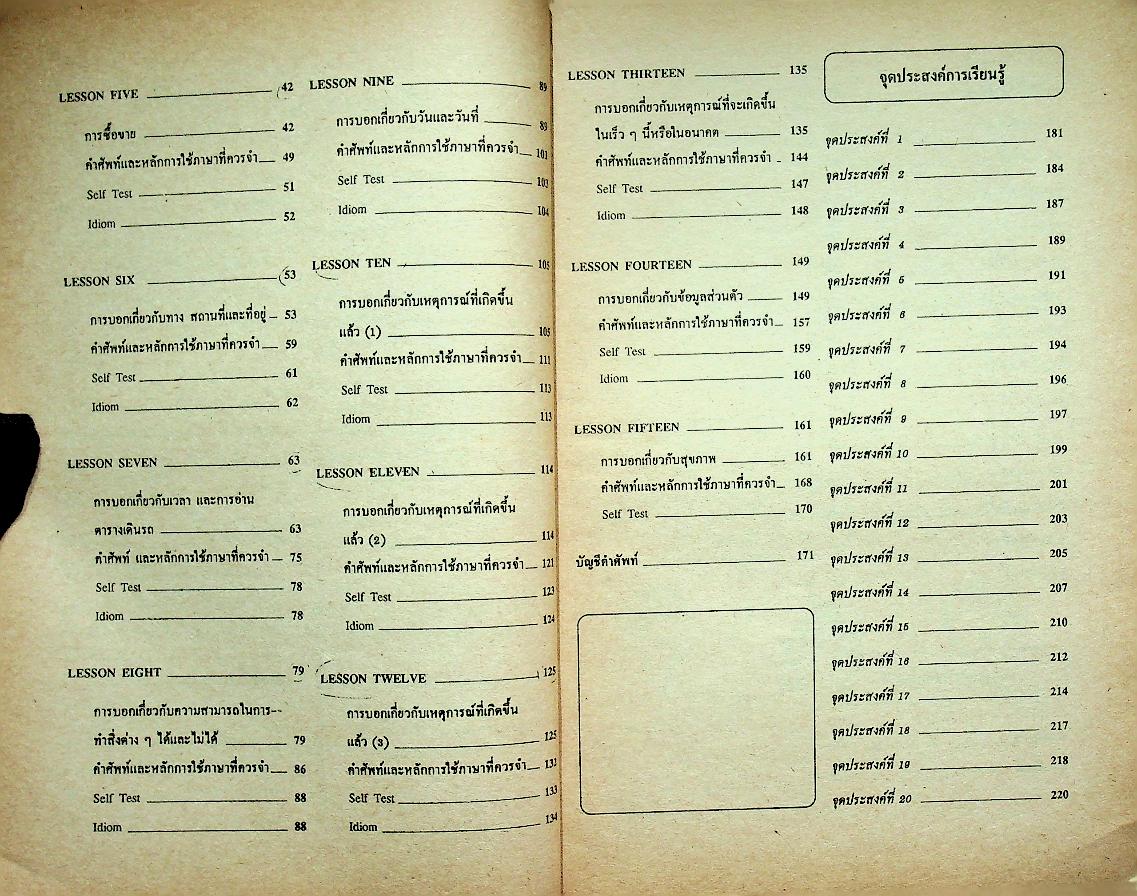 LESSON FIVE 42
การซื้อขาย 42
คำศัพท์และหลักการใช้ภาษาที่ควรจำ 49
Self Test 51
Idiom 52
LESSON SIX 53
การบอกเกี่ยวกับทาง สถานที่และที่อยู่ 53
คำศัพท์และหลักการใช้ภาษาที่ควรจำ 59
Self Test 61
Idiom 62
LESSON SEVEN 63
การบอกเกี่ยวกับเวลา และการอ่าน
ตารางเดินรถ 63
คำศัพท์ และหลักการใช้ภาษาที่ควรจำ 75
Self Test 78
Idiom 78
LESSON EIGHT 79
การบอกเกี่ยวกับความสามารถในการ--
ทำสิ่งต่าง ๆ ได้และไม่ได้ 79
คำศัพท์และหลักการใช้ภาษาที่ควรจำ 86
Self Test 88
Idiom 88
LESSON NINE 89
การบอกเกี่ยวกับวันและวันที่ 89
คำศัพท์และหลักการใช้ภาษาที่ควรจำ 101
Self Test 103
Idiom 104
LESSON TEN 105
การบอกเกี่ยวกับเหตุการณ์ที่เกิดขึ้น
แล้ว (1) 105
คำศัพท์และหลักการใช้ภาษาที่ควรจำ 111
Self Test 113
Idiom 113
LESSON ELEVEN 114
การบอกเกี่ยวกับเหตุการณ์ที่เกิดขึ้น
แล้ว (2) 114
คำศัพท์และหลักการใช้ภาษาที่ควรจำ 121
Self Test 123
Idiom 124
LESSON TWELVE 125
การบอกเกี่ยวกับเหตุการณ์ที่เกิดขึ้น
แล้ว (3) 125
คำศัพท์และหลักการใช้ภาษาที่ควรจำ 132
Self Test 133
Idiom 134
LESSON THIRTEEN 135
การบอกเกี่ยวกับเหตุการณ์ที่จะเกิดขึ้น
ในเร็ว ๆ นี้หรือในอนาคต 135
คำศัพท์และหลักการใช้ภาษาที่ควรจำ 144
Self Test 147
Idiom 148
LESSON FOURTEEN 149
การบอกเกี่ยวกับข้อมูลส่วนตัว 149
คำศัพท์และหลักการใช้ภาษาที่ควรจำ 157
Self Test 159
Idiom 160
LESSON FIFTEEN 161
การบอกเกี่ยวกับสุขภาพ 161
คำศัพท์และหลักการใช้ภาษาที่ควรจำ 168
Self Test 170
บัญชีคำศัพท์ 171
จุดประสงค์การเรียนรู้
จุดประสงค์ที่ 1 181
จุดประสงค์ที่ 2 184
จุดประสงค์ที่ 3 187
จุดประสงค์ที่ 4 189
จุดประสงค์ที่ 5 191
จุดประสงค์ที่ 6 193
จุดประสงค์ที่ 7 194
จุดประสงค์ที่ 8 196
จุดประสงค์ที่ 9 197
จุดประสงค์ที่ 10 199
จุดประสงค์ที่ 11 201
จุดประสงค์ที่ 12 203
จุดประสงค์ที่ 13 205
จุดประสงค์ที่ 14 207
จุดประสงค์ที่ 15 210
จุดประสงค์ที่ 16 212
จุดประสงค์ที่ 17 214
จุดประสงค์ที่ 18 217
จุดประสงค์ที่ 19 218
จุดประสงค์ที่ 20 220